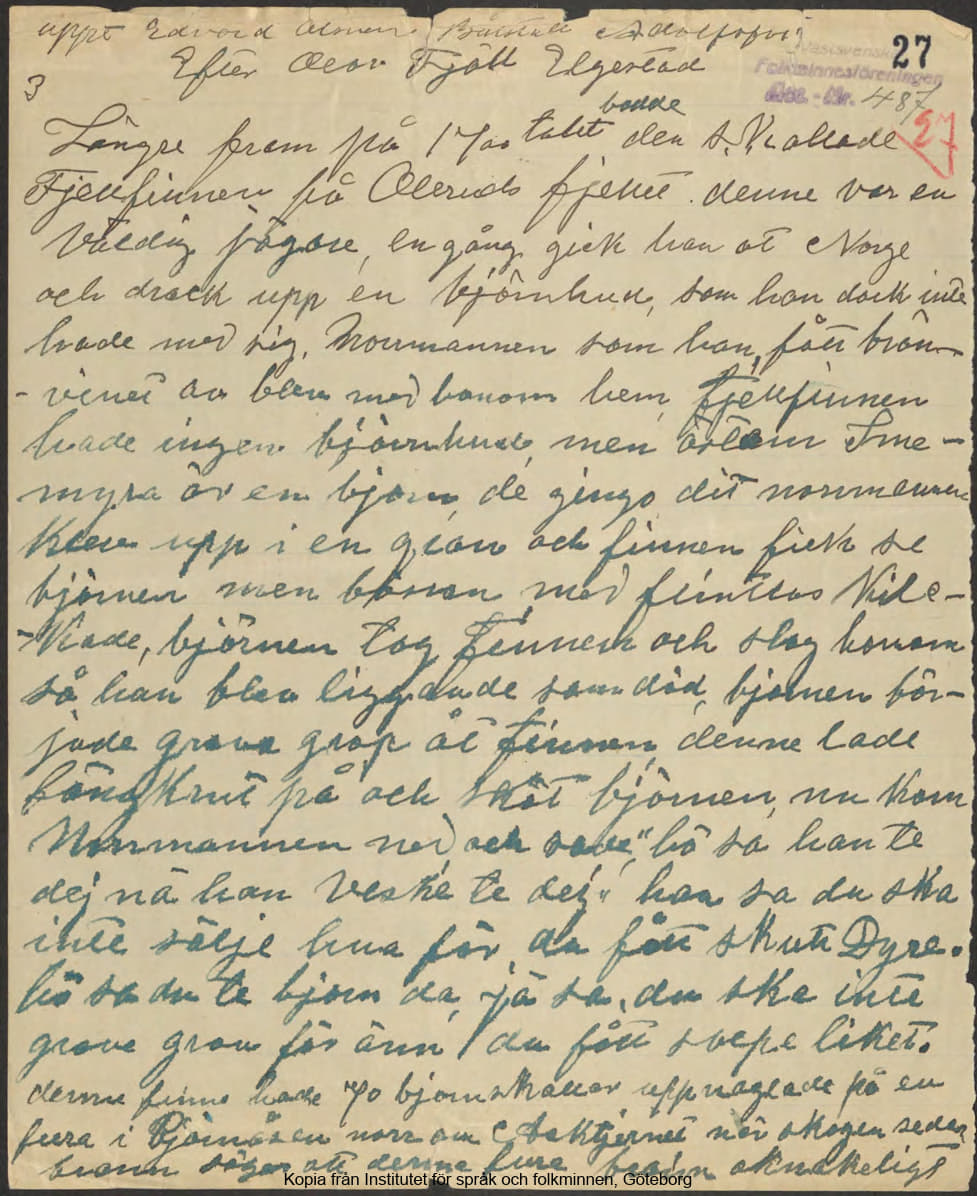 uppt Edvard Olsson, Båstad Adolfsfors
Västsvenska
Folkminnesföreningen
27
Efter Olov Fjäll Elgestad
3
Acc.-Nr. 487
27
bodde
Längre fram på 1700 talet den s.k. kallade
Fjellfinnen på Oleruds fjellet. denne var en
väldig jägare, en gång gick han åt Norge
och drack upp en björnhud, som han dock inte
hade med sig, Norrmannen som han fått brän-
-vinet av blev med honom hem, Fjellfinnen
hade ingen björnhud, men östom Sme-
myra är en björn, de gingo dit norrmannen
klev upp i en gran och finnen fick se
björnen men bössan med flintlås klic-
-kade, björnen tog finnen och slog honom
så han blev liggande som död, björnen bör-
jade grava grop åt finnen, denne lade
fängkrut på och sköt björnen, nu kom
Norrmannen ned och sade, "hö sa han te
dej nä han veske te dej" han sa du ska
inte sälje hua för du fått skutt Dyre.
hö sa du te björn da, jä sa, du ska inte
grave grav för änn du fått svepe liket.
denne finne hade 70 björnskallar uppnaglade på en
fura i Björnåsen norr om Asktjernet när skogen sedan
brann säges att denne fura brann oknakeligt
Kopia från Institutet för språk och folkminnen, Göteborg